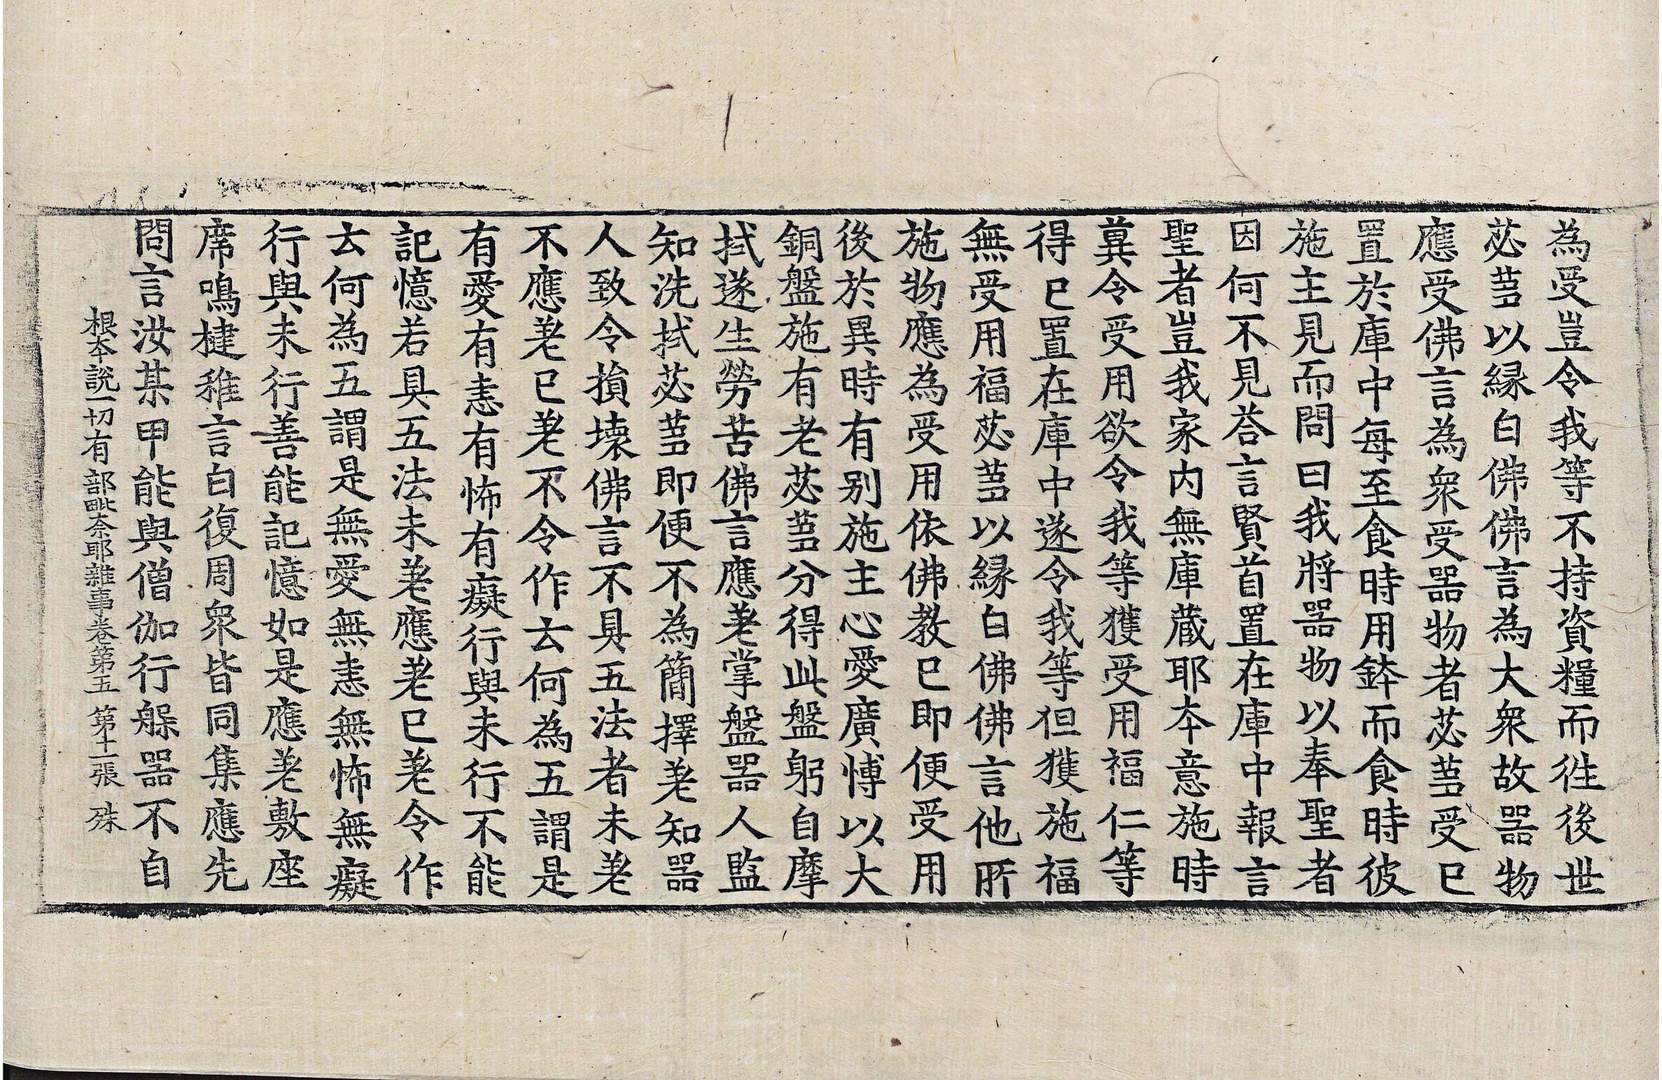 為受豈令我等不持資糧而徃後世
苾蒭以縁白佛佛言為大衆故器物
應受佛言為衆受器物者苾蒭受已
置於庫中每至食時用鉢而食時彼
施主見而問曰我將器物以奉聖者
因何不見荅言賢首置在庫中報言
聖者豈我家內無庫蔵耶夲意施時
冀令受用欲令我等獲受用福仁等
得已置在庫中遂令我等但獲施福
無受用福苾蒭以縁白佛佛言他所
施物應為受用依佛教已即便受用
後於異時有别施主心愛廣愽以大
銅盤施有老苾蒭分得此盤躬自摩
拭遂生勞苦佛言應差掌盤器人監
知洗拭苾蒭即便不為簡擇差知器
人致令損壊佛言不具五法者未差
不應差已差不令作云何為五謂是
有愛有恚有怖有癡行與未行不能
記憶若具五法未差應差已差令作
云何為五謂是無愛無恚無怖無癡
行與未行善能記憶如是應差敷座
席鳴揵稚言白復周衆皆同集應先
問言汝某甲能與僧伽行躶器不自
根夲說一切有部毗奈耶雜事卷第五 第十一張 殊